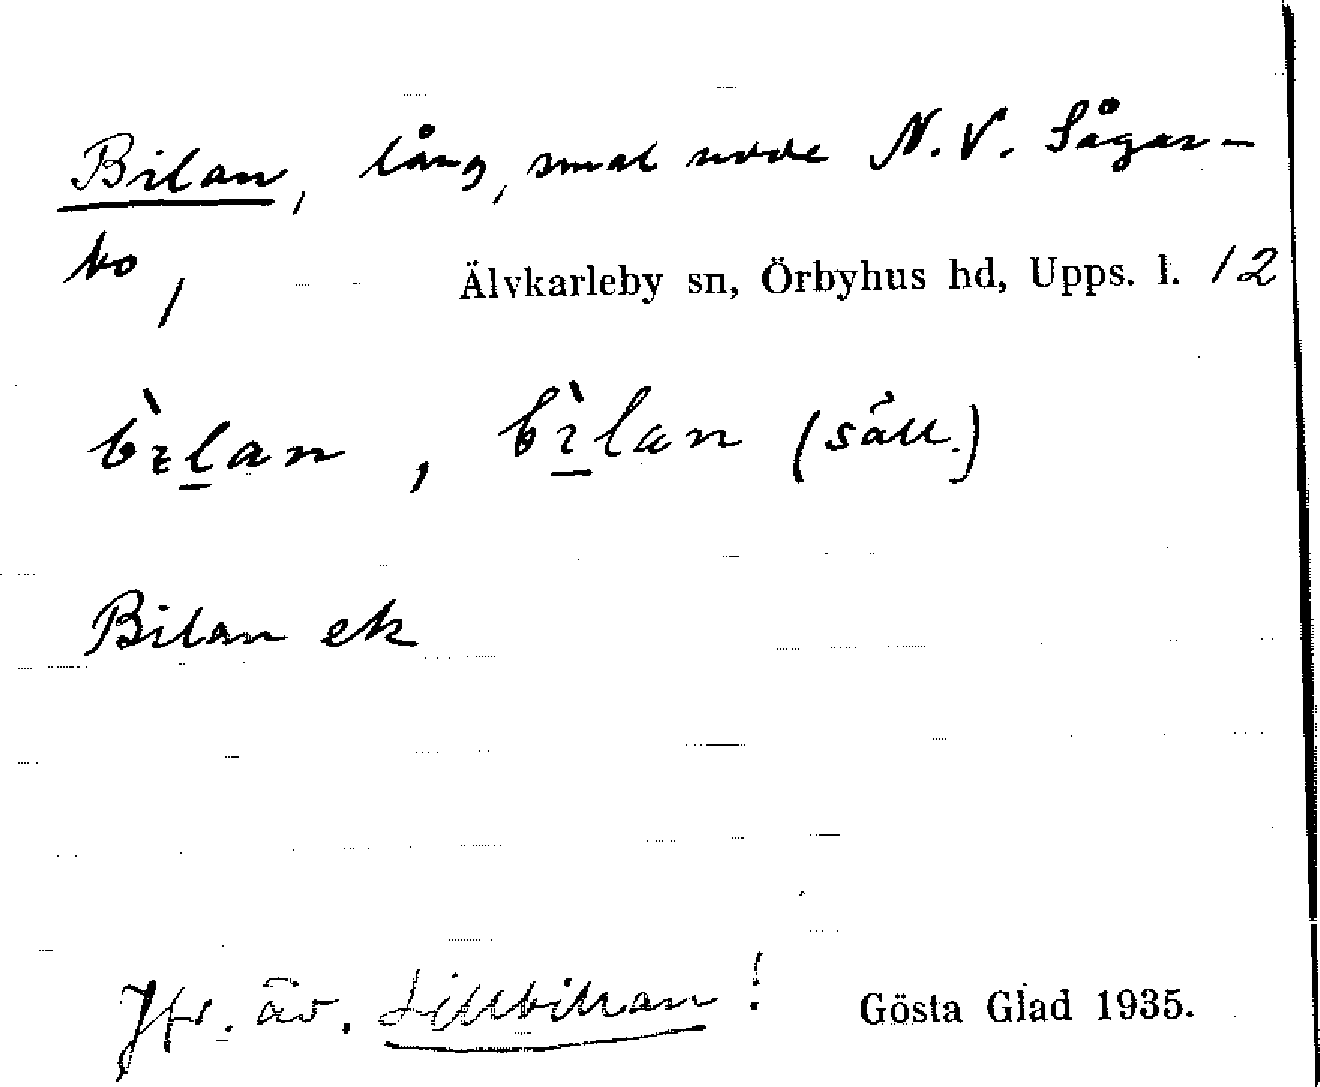 Bilan, lång, smal udde N.V. Sågar-
bo, Älvkarleby sn, Örbyhus hd, Upps. l. 12
bìlan, bìlan (säll.)
Bilan ek
Jfr. äv. Lillbillran!
Gösta Glad 1935.